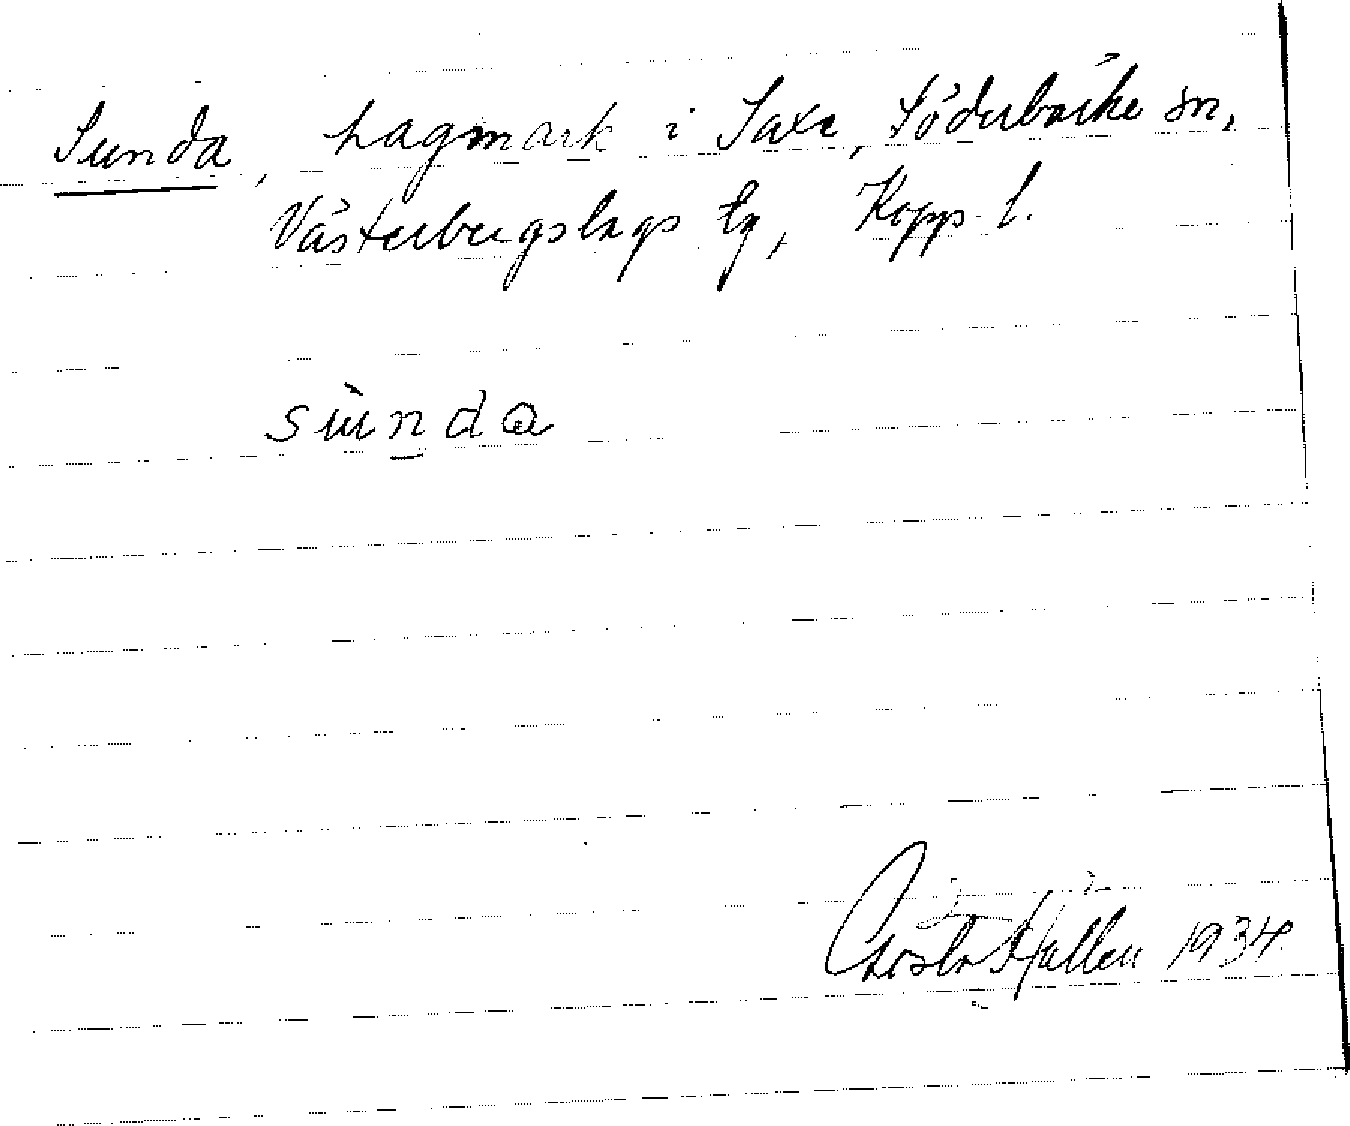 Sunda, hagmark i Saxe, Söderbärke sn,
Västerbergslags tg, Kopp. l.
sùnda
Hällen 1934.